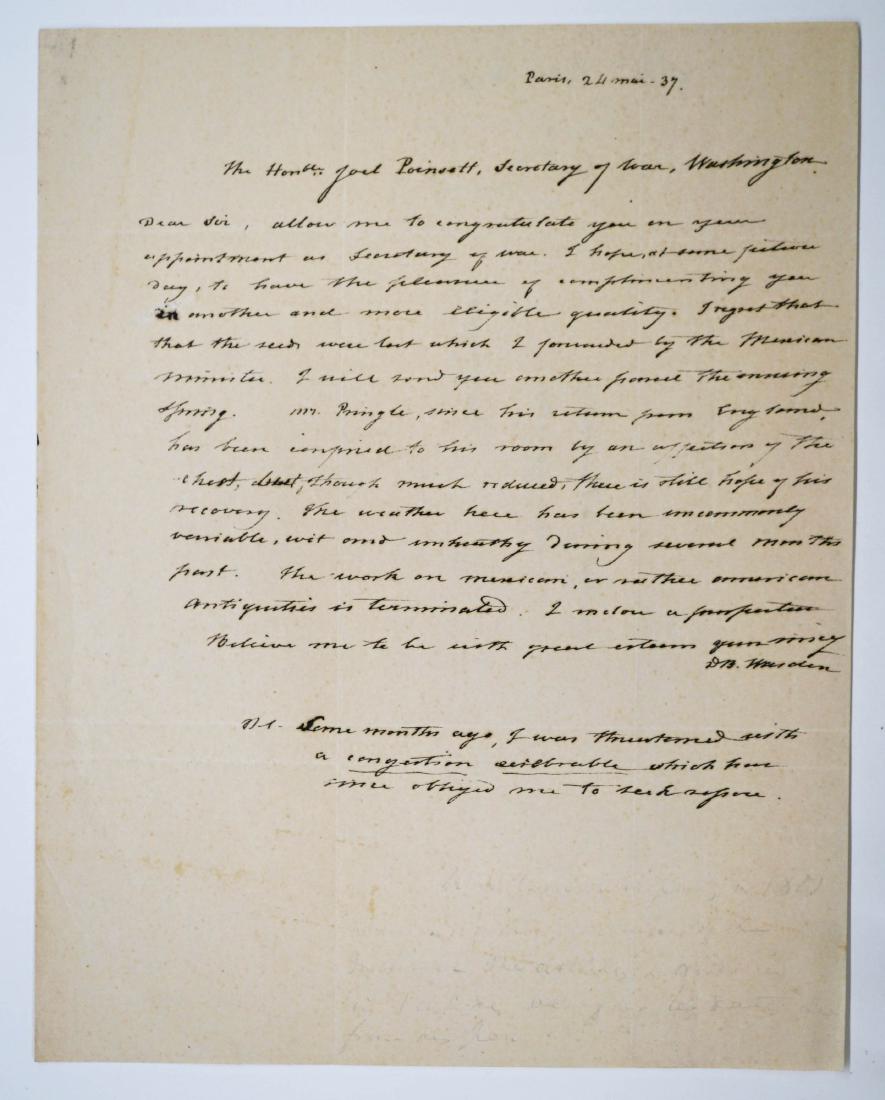 Paris, 24 mai - 37.
The Honble. Joel Poinsett, Secretary of War, Washington.
Dear Sir, allow me to congratulate you on your
appointment as Secretary of war. I hope, at some future
Day, to have the pleasure of complimenting you
in another and more eligible quality. I regret that
that the seeds were lost which I forwarded by the Mexican
minister. I will send you another parcel the ensuing
Spring. Mr. Pringle, since his return from England,
has been confined to his room by an affection of the
chest, but, though much reduced, there is still hope of his
recovery. The weather here has been uncommonly
variable, wet and unhealthy During several months
past. The work on mexican, or rather american
antiquities is terminated. I inclose a prospectus
Believe me to be with great esteem yours
D.B. Warden
Some months ago, I was threatened with
a congestion cerebrale which have
since obliged me to seek repose.
from his